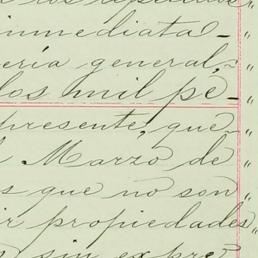 los
inmediata-
ería general,
los mil pe-
presente, que
Marzo de
s que no son
ir propiedades
s sin expre